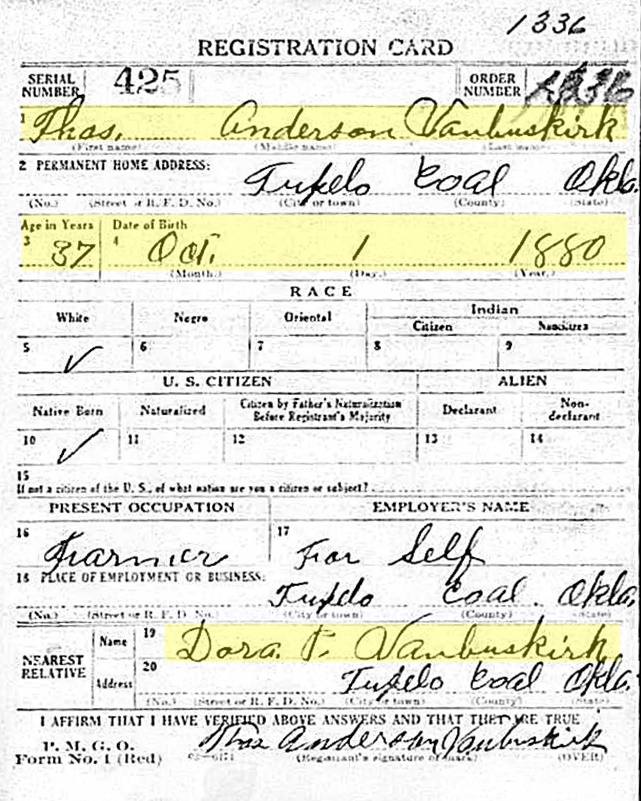 1336
REGISTRATION CARD
SERIAL NUMBER 425 ORDER NUMBER
1 Thos. Anderson Vanbuskirk
(First name) (Middle name) (Last name)
2 PERMANENT HOME ADDRESS: Tupelo Coal Okla.
(No.) (Street or R. F. D. No.) (City or town) (County) (State)
Age in Years Date of Birth
3 37 4 Oct. 1 1880
(Month.) (Day.) (Year.)
RACE
White Negro Oriental Indian
Citizen Noncitizen
5 ✓ 6 7 8 9
U. S. CITIZEN ALIEN
Native Born Naturalized Citizen by Father's Naturalization Before Registrant's Majority Declarant Non-declarant
10 ✓ 11 12 13 14
15
If not a citizen of the U. S., of what nation are you a citizen or subject?
PRESENT OCCUPATION EMPLOYER'S NAME
16 Farmer 17 For Self
18 PLACE OF EMPLOYMENT OR BUSINESS:
Tupelo Coal Okla.
(No.) (Street or R. F. D. No.) (City or town) (County) (State)
NEAREST RELATIVE Name 19 Dora. F. Vanbuskirk
Address 20 Tupelo Coal Okla.
(No.) (Street or R. F. D. No.) (City or town) (County) (State)
I AFFIRM THAT I HAVE VERIFIED ABOVE ANSWERS AND THAT THEY ARE TRUE
P. M. G. O.
Form No. 1 (Red) Thos Anderson Vanbuskirk
(Registrant's signature or mark) (OVER)